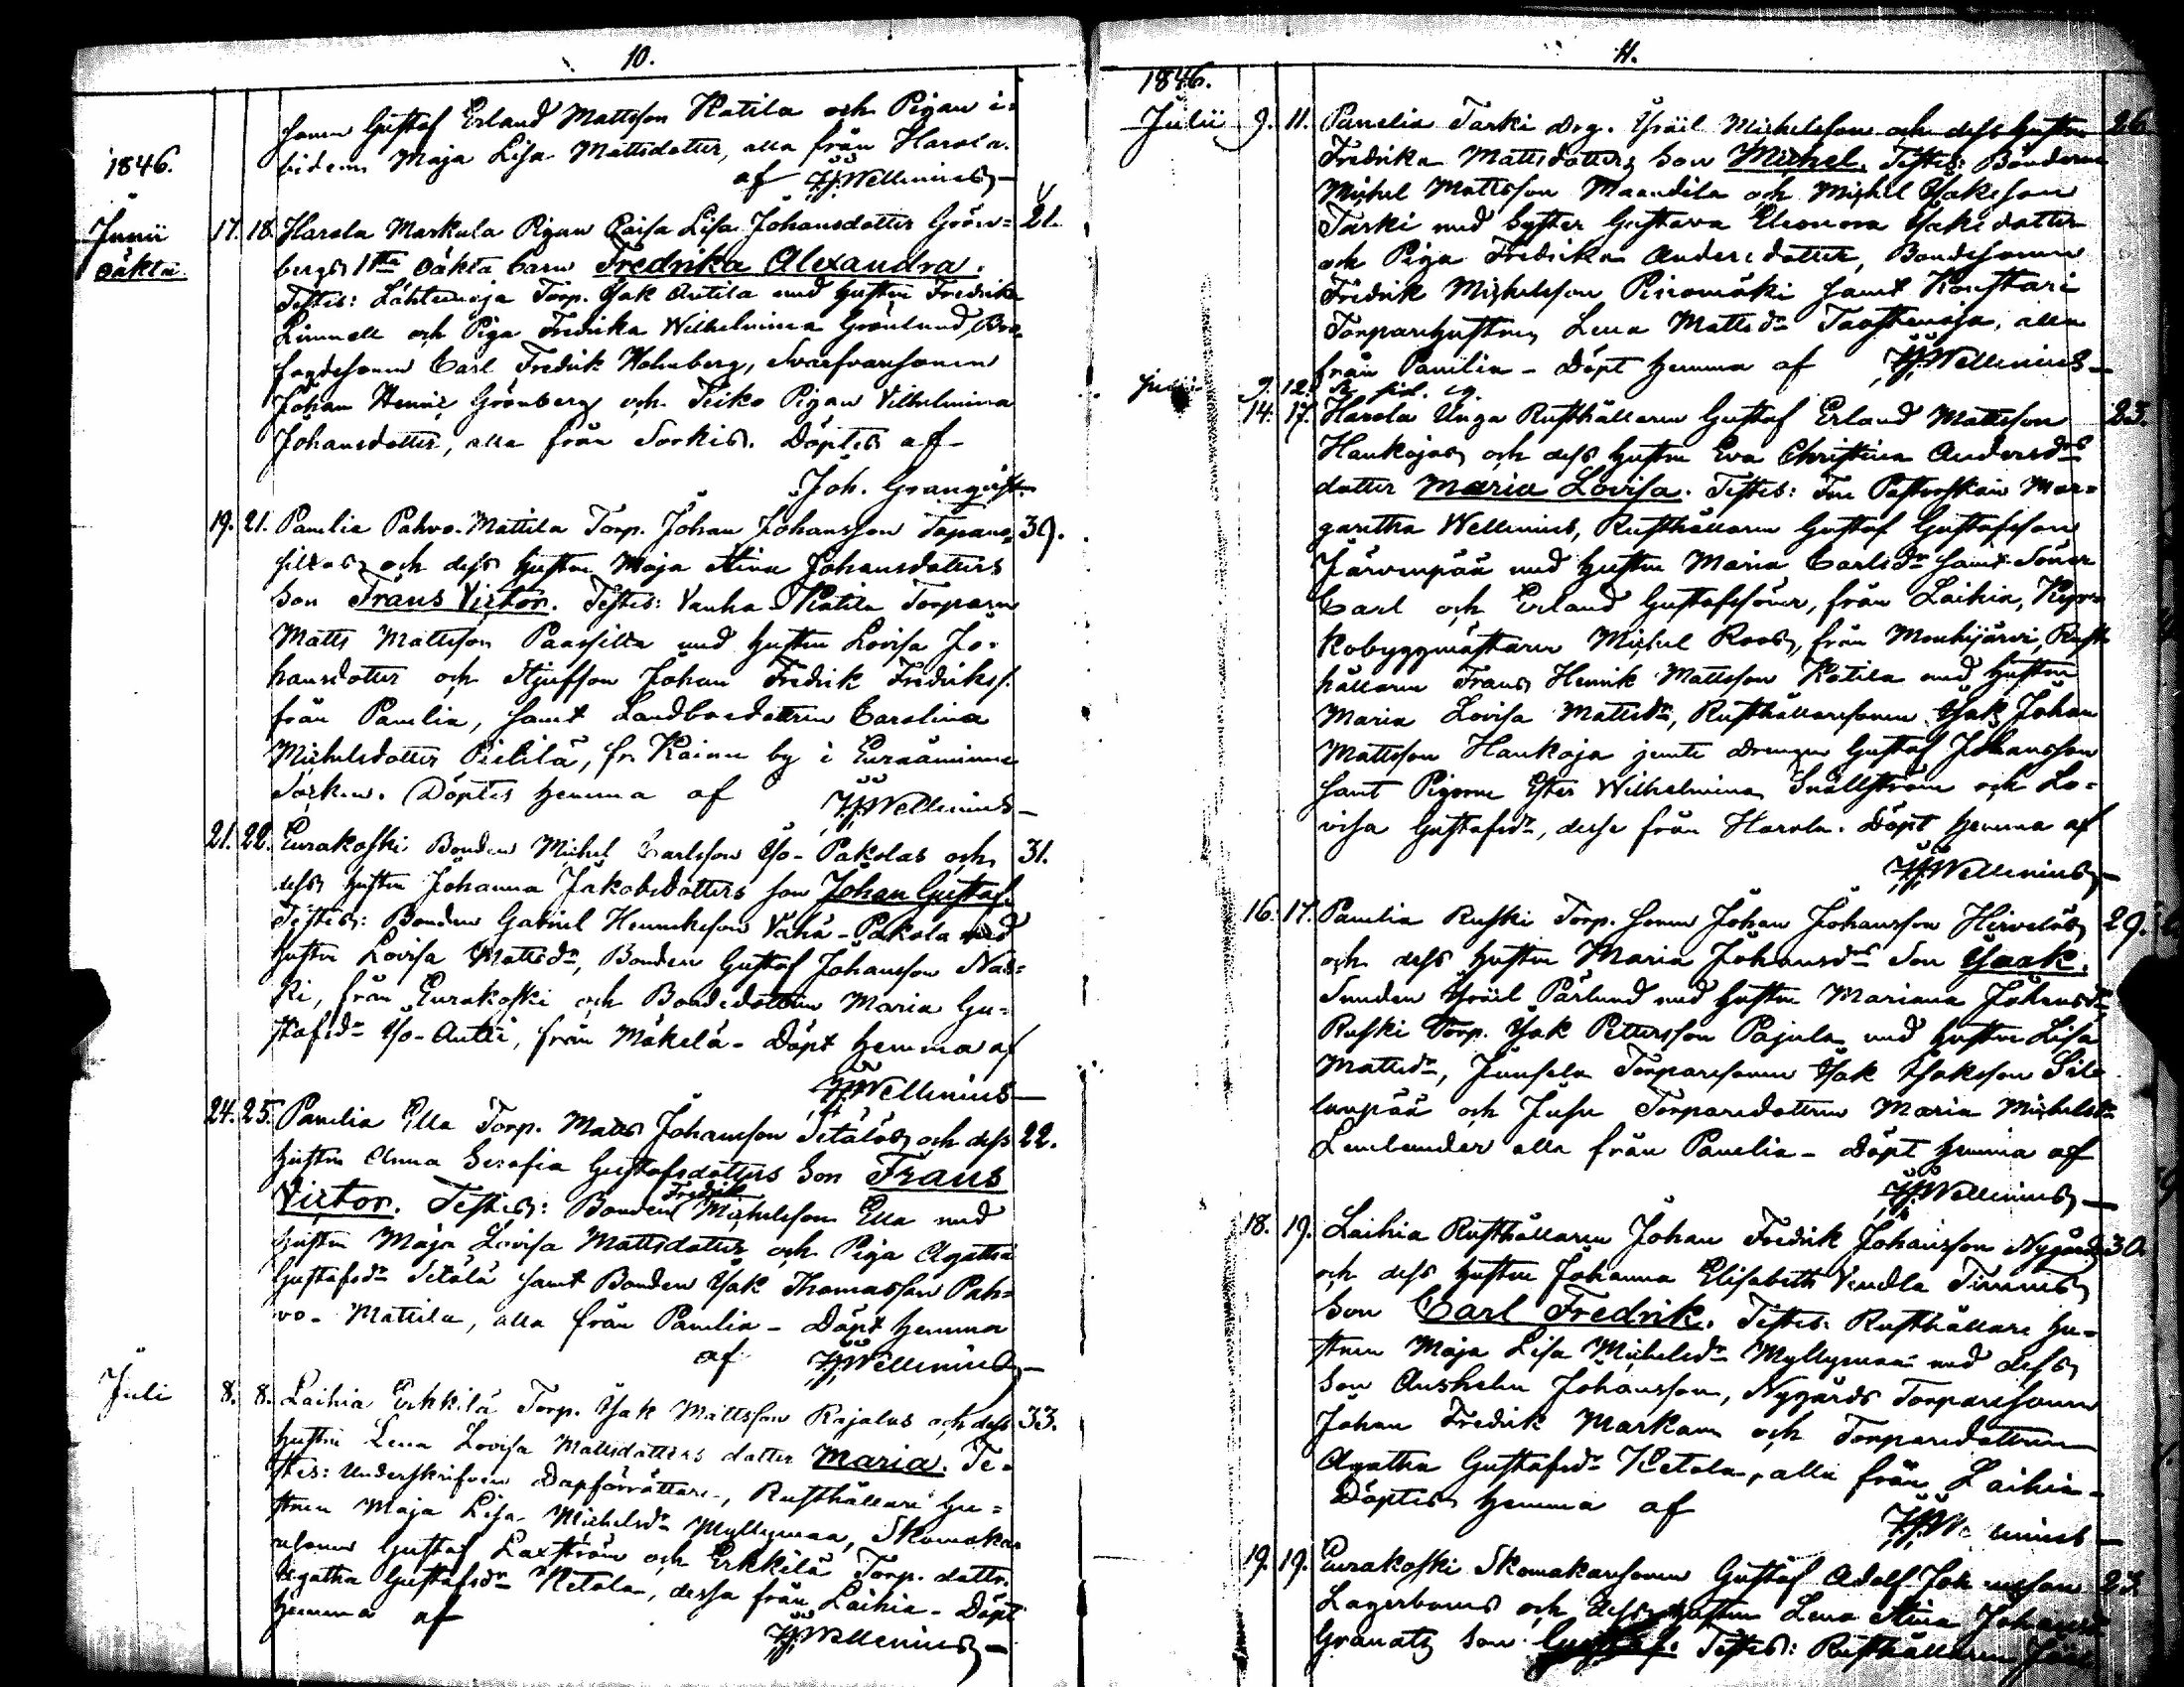 10.
sonen Gustaf Erland Mattsson Katila och Pigan i-
bidem Maja Lisa Mattsdotter, alla från Harola.
1846.
af Wellenius
Junii 17. 18. Harola Markula Pigan Caisa Lisa Johansdotter Grön= 21.
oäkta bergs 1sta oäkta barn Fredrika Alexandra.
Testes: Torp. Isak Antila med hustru Fredrika
Linnell och Piga Fredrika Wilhelmina Grönlund,
Carl Fredrik Holmberg, Svarfvaresonen
Johan Henric Grönberg och Pigan Vilhelmina
Johansdotter, alla från Sorkis. Döptes af
Joh. Granqvist
19. 21. Panelia Pahvo-Mattila Torp. Johan Johansson 39.
och dess hustru Maja Stina Johansdotters
Son Frans Victor. Testes: Vanha-Katila Torparn
Matts Mattsson med hustru Lovisa Jo-
hansdotter och Styfson Johan Fredrik Fredrikss.
från Panelia, samt Landbondedottren Carolina
Michelsdotter, fr. by i Euraåminne
Socken. Döptes hemma af Wellenius
21. 22. Eurakoski Bonden Michel Carlsson Iso-Pakolas och 31.
dess hustru Johanna Jakobsdotters son Johan Gustaf.
Testes: Bonden Gabriel Henriksson Vähä-Pakola med
hustru Lovisa Mattsdr, Bonden Gustaf Johansson Nas-
ki, från Eurakoski och Bondedottren Maria Gu-
stafsdr Iso-Antti, från Mäkelä - Döpt hemma af
Wellenius
24. 25. Panelia Ella Torp. Matts Johansson Setäläs och dess 22.
hustru Anna Serafia Gustafsdotters Son Frans
Victor. Testes: Bonden Fredrik Michelsson Ella med
hustru Maja Lovisa Mattsdotter och Piga Agatha
Gustafsdr Setälä samt Bonden Isak Thomasson Pah-
vo-Mattila, alla från Panelia - Döpt hemma
af Wellenius
Juli 8. 8. Laihia Erkkilä Torp. Isak Mattsson Rajalas och dess 33.
hustru Lena Lovisa Mattsdotters dotter Maria. Te-
stes: Underskrifven Dopförrättare, Rusthållare hu-
strun Maja Lisa Michelsdr Myllymaa, Skomakar
sonen Gustaf Laxström och Erkkilä Torp. dottr.
Agatha Gustafsdr Ketola, dessa från Laihia - Döpt
hemma af Wellenius
11.
1846.
Julii 9. 11. Panelia Tarki drg. Isräil Michelsson och dess hustru 26.
Fredrika Mattsdotters Son Michel. Testes: Bönderne
Michel Mattsson och Michel Isaksson
Tarki med Syster Gustava Eleonora Isaksdotter
och Piga Fredrika Andersdotter, Bondesonen
Fredrik Michelsson samt
Torparehustrun Lena Mattsdr, alla
från Panelia - Döpt hemma af Wellenius
9. 12.
14. 17. Harola Unga Rusthållaren Gustaf Erland Mattsson 23.
Haukojas och dess hustru Eva Christina Andersdrs
dotter Maria Lovisa. Testes: Mar-
garetha Wellenius, Rusthållaren Gustaf Gustafsson
Järvenpää med hustru Maria Carlsdr samt Söner
Carl och Erland Gustafssöner, från Laihia, Kyr-
kobyggmästaren Michel Roos, från Mouhijärvi, Rust-
hållaren Frans Henrik Mattsson Katila med hustru
Maria Lovisa Mattsdr, Rusthållaresonen Isak Johan
Mattsson Haukoja jemte drengen Gustaf Johansson
samt Pigorne Ester Wilhelmina Snällström och Lo-
visa Gustafsdr, desse från Harola. Döpt hemma af
Wellenius
16. 17. Panelia Ruski Torp. sonen Johan Johansson Hirveläs 29.
och dess hustru Maria Johansdrs Son Isaak.
Isräil Pärlund med hustru Mariana Johansdr
Ruski Torp. Isak Pettersson Pajula med hustru Lisa
Mattsdr, Junnela Torparesonen Isak Isaksson Sil-
lanpää och Torparedottren Maria Michelsdr
alla från Panelia - Döpt hemma af
Wellenius
18. 19. Laihia Rusthållaren Johan Fredrik Johansson Nygårds 30.
och dess hustru Johanna Elisabeth Vendla
Son Carl Fredrik. Testes: Rusthållare hu-
strun Maja Lisa Michelsdr Myllymaa med dess
Son Anshelm Johansson, Nygårds Torparesonen
Johan Fredrik Markan och Torparedottren
Agatha Gustafsdr Ketola, alla från Laihia.
Döptes hemma af Wellenius
19. 19. Eurakoski Skomakaresonen Gustaf Adolf Johansson 23.
Lagerboms och dess hustru Lena Stina Johansd
Granats Son Gustaf. Testes: Rusthållaren